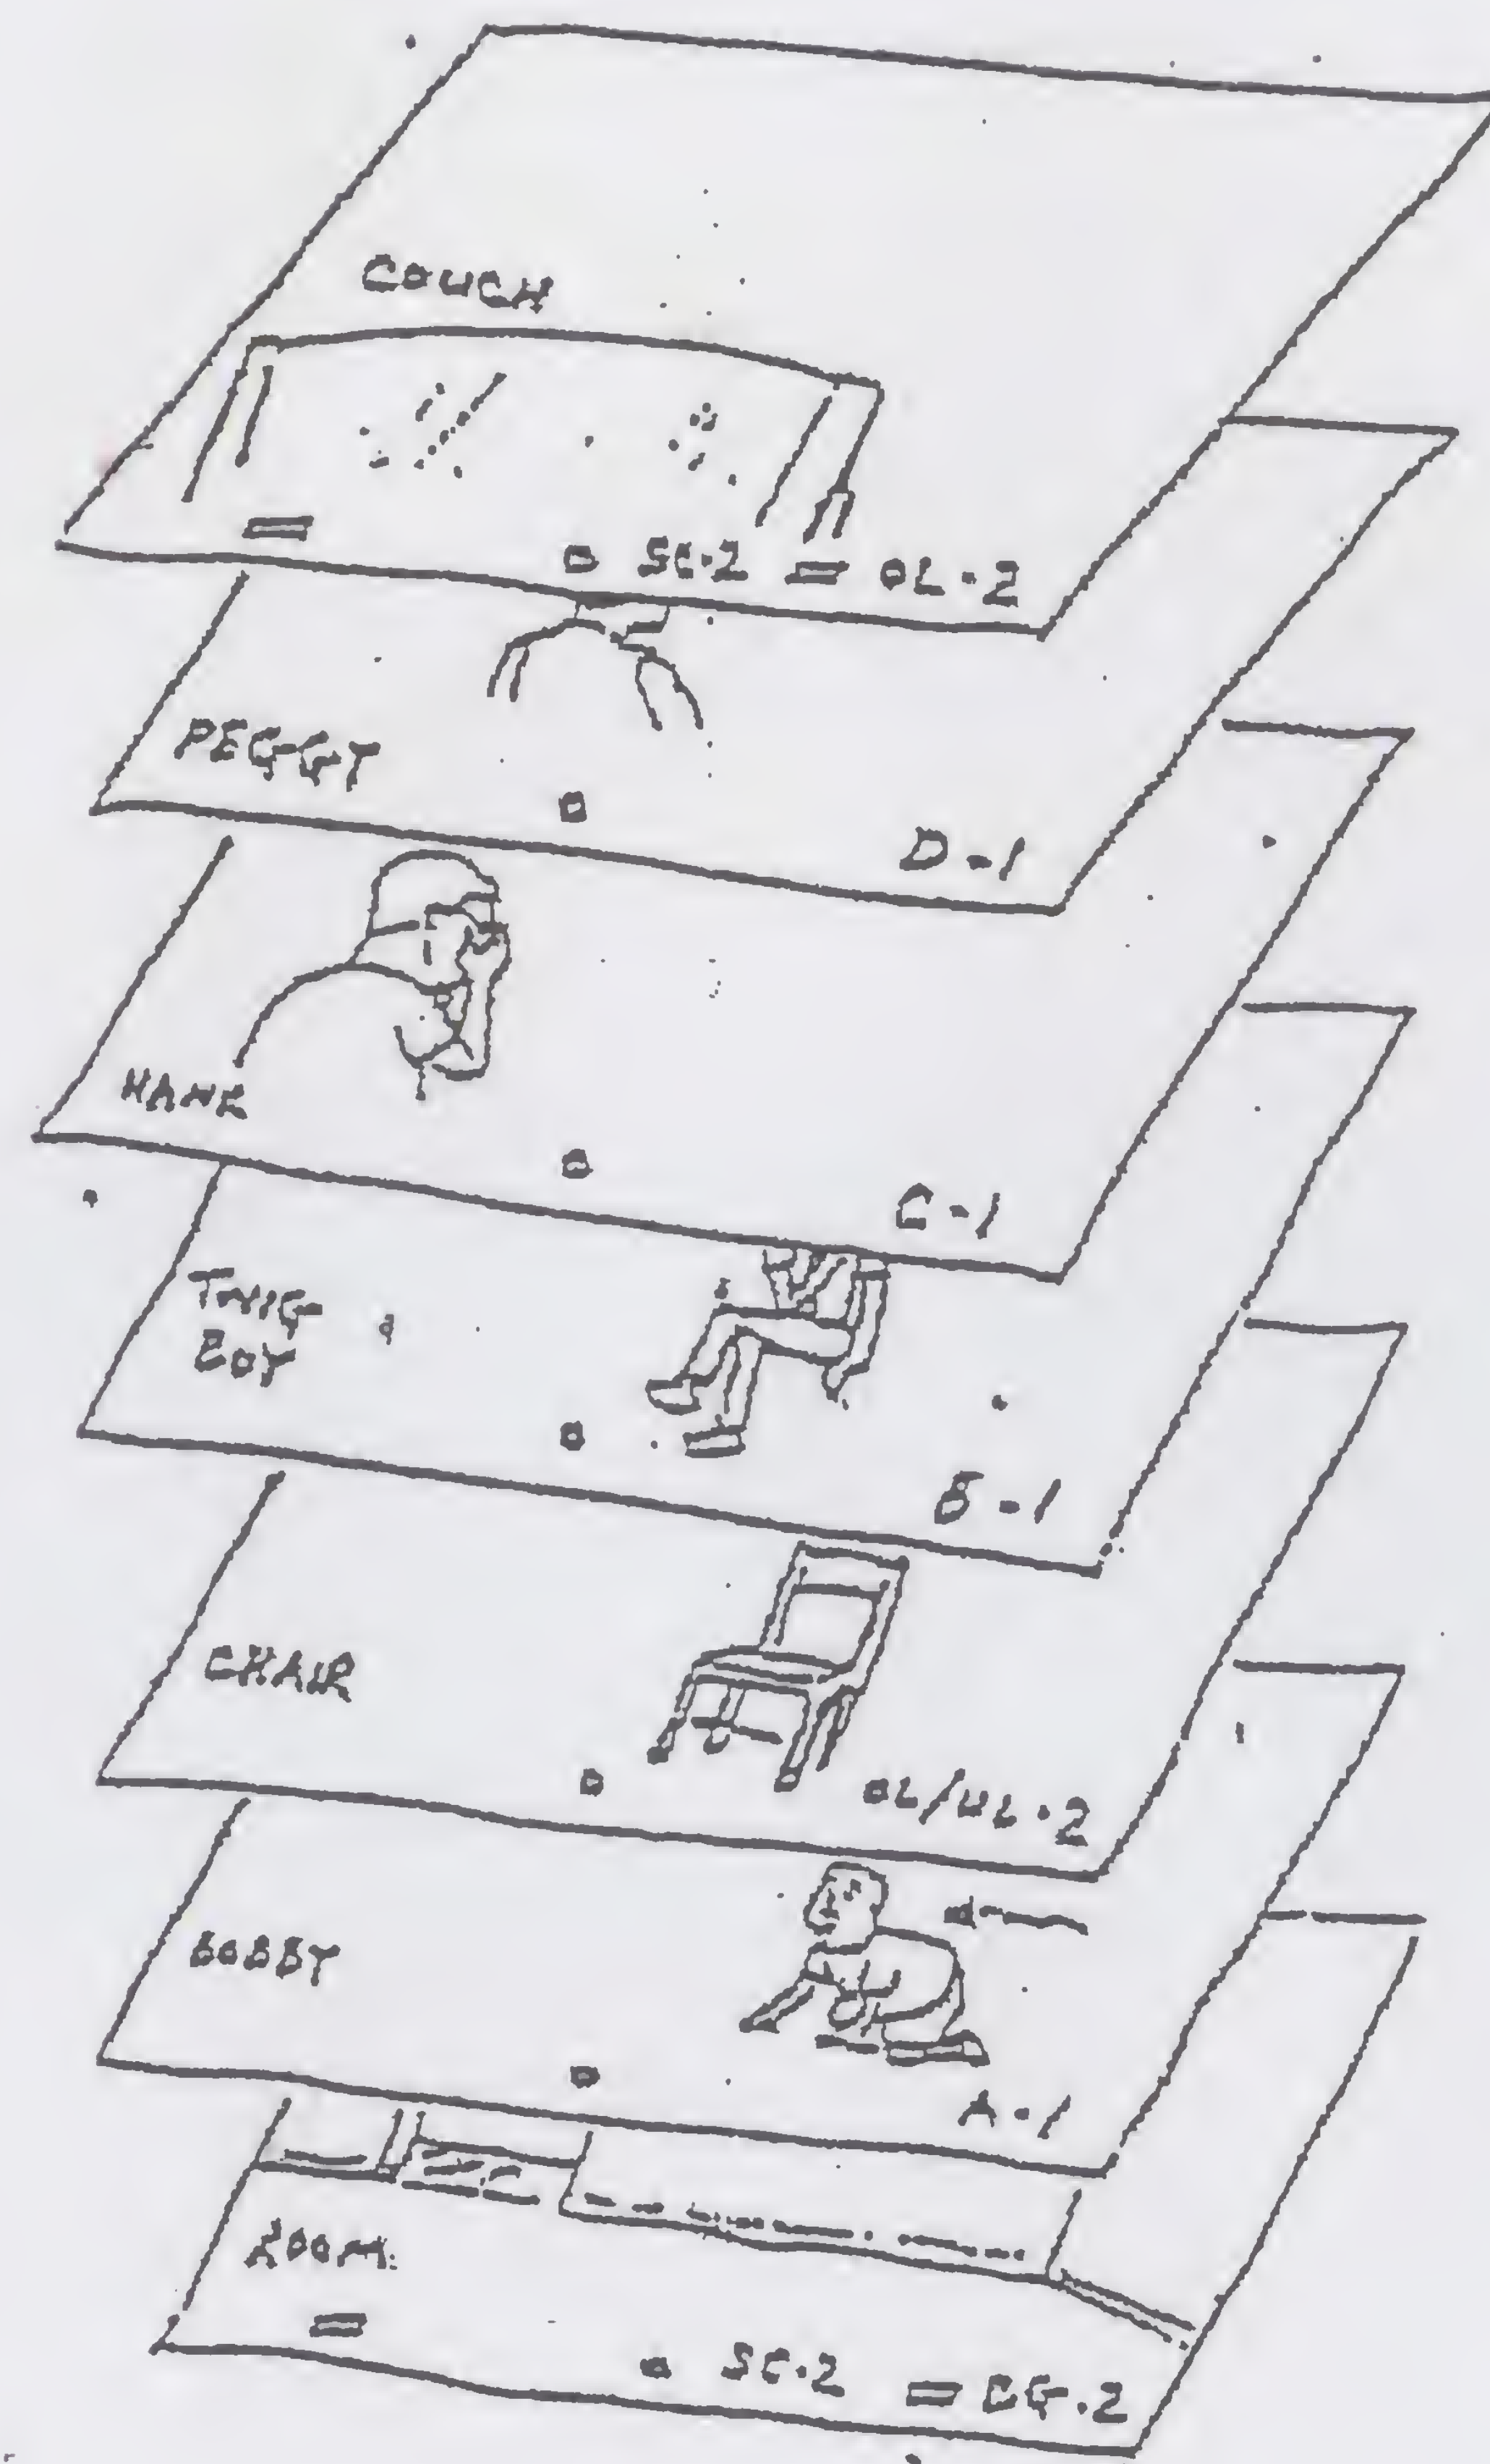 COUCH
SC·2 OL·2
PEGGY
D-1
HANK
C-1
TWIG
BOY
B-1
CHAIR
OL/UL·2
BOBBY
A-1
ROOM
SC·2 BG·2